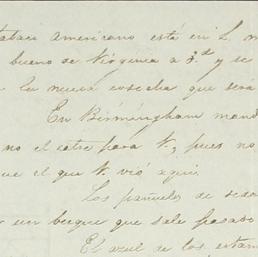 tabaco Americano está en L. m
bueno de Virginia a 3.d y se
la nueva cosecha que será
En Birmingham mand
no el catre para V, pues no
que el que V. vió aqui.
Los pañuelos de seda
un buque que sale pasado
El azul de los estam